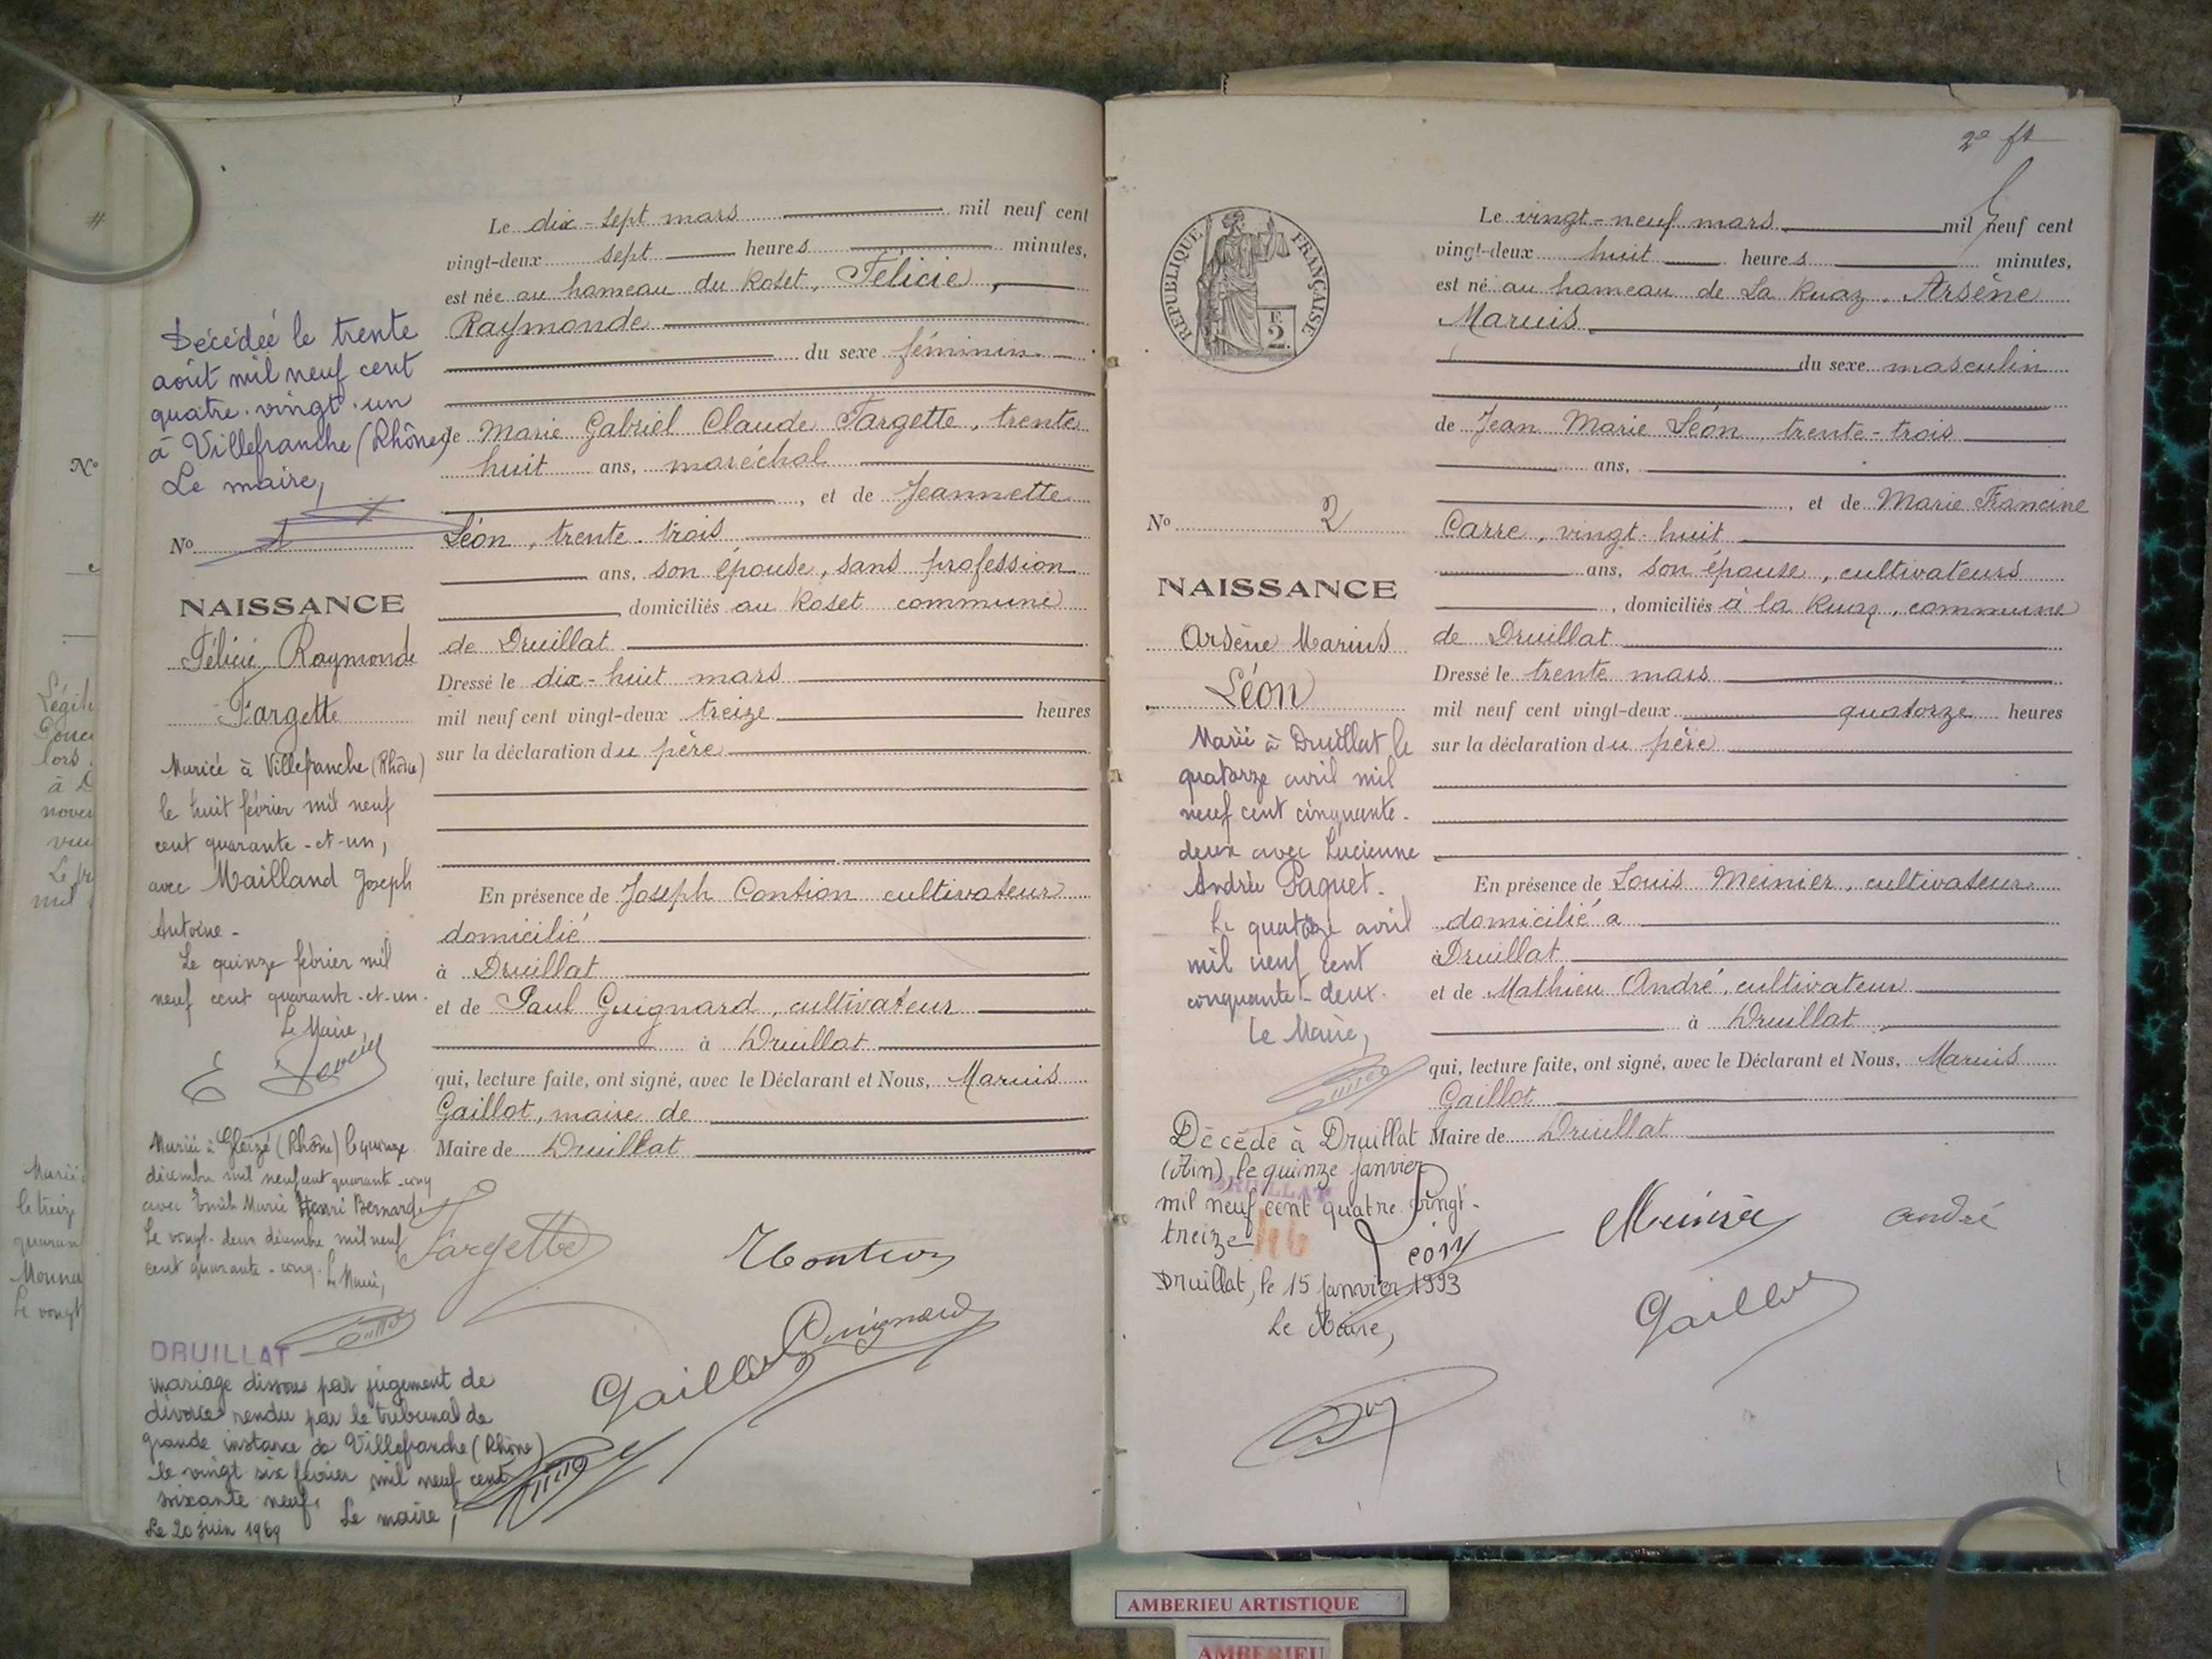 N°
Légit
lors
à D
nove
Le
mil
Marié
le treize
quaran
Monna
Le vingt
Décédée le trente
août mil neuf cent
quatre-vingt-un
à Villefranche (Rhône)
Le maire,
N° 1
NAISSANCE
Félicie Raymonde
Fargette
Mariée à Villefranche (Rhône)
le huit février mil neuf
cent quarante-et-un,
avec Mailland Joseph
Antoine -
Le quinze février mil
neuf cent quarante-et-un.
Le Maire,
Mariée à Gleizé (Rhône) le quinze
décembre mil neuf cent quarante-cinq
avec Emile Marie Henri Bernard
Le vingt-deux décembre mil neuf
cent quarante-cinq. Le Maire,
DRUILLAT
mariage dissous par jugement de
divorce rendu par le tribunal de
grande instance de Villefranche (Rhône)
le vingt six février mil neuf cent
soixante neuf.
Le 20 juin 1969 Le maire,
Le dix-sept mars mil neuf cent
vingt-deux sept heures minutes,
est née au hameau du Roset, Félicie,
Raymonde
du sexe féminin
de Marie Gabriel Claude Fargette, trente
huit ans, maréchal
, et de Jeannette
Léon, trente-trois
ans, son épouse, sans profession
, domiciliés au Roset commune
de Druillat
Dressé le dix-huit mars
mil neuf cent vingt-deux treize heures
sur la déclaration du père
En présence de Joseph Contion cultivateur
domicilié
à Druillat
et de Paul Guignard, cultivateur
à Druillat
qui, lecture faite, ont signé, avec le Déclarant et Nous, Marius
Gaillot, maire de
Maire de Druillat
Fargette
Contion
Guignard
Gaillot
2e ft
REPUBLIQUE FRANÇAISE
2
N° 2
NAISSANCE
Arsène Marius
Léon
Marié à Druillat le
quatorze avril mil
neuf cent cinquante-
deux avec Lucienne
Andrée Paquet.
Le quatorze avril
mil neuf cent
cinquante-deux.
Le Maire,
Décédé à Druillat
(Ain), le quinze janvier
DRUILLAT
mil neuf cent quatre-vingt-
treize
Druillat, le 15 janvier 1993
Le Maire,
Le vingt-neuf mars mil neuf cent
vingt-deux huit heures minutes,
est né au hameau de La Ruaz, Arsène
Marius
du sexe masculin
de Jean Marie Léon, trente-trois
ans,
, et de Marie Francine
Carre, vingt-huit
ans, son épouse, cultivateurs
, domiciliés à la Ruaz, commune
de Druillat
Dressé le trente mars
mil neuf cent vingt-deux quatorze heures
sur la déclaration du père
En présence de Louis Meinier, cultivateur
domicilié a
à Druillat
et de Mathieu André, cultivateur
à Druillat
qui, lecture faite, ont signé, avec le Déclarant et Nous, Marius
Gaillot
Maire de Druillat
Léon
Meinier
André
Gaillot
AMBERIEU ARTISTIQUE
AMBERIEU